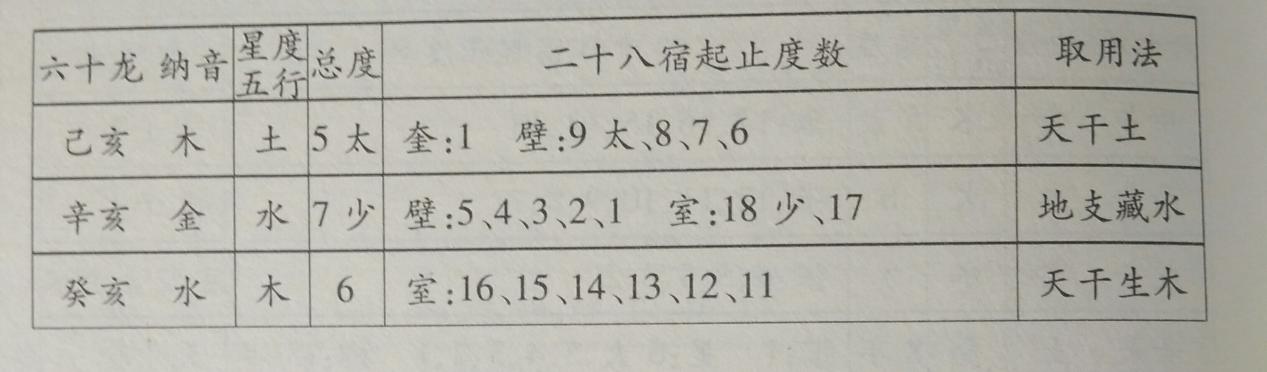 六十龙 纳音 星度五行 总度 二十八宿起止度数 取用法
己亥 木 土 5 太 奎:1 壁:9 太、8、7、6 天干土
辛亥 金 水 7 少 壁:5、4、3、2、1 室:18 少、17 地支藏水
癸亥 水 木 6 室:16、15、14、13、12、11 天干生木